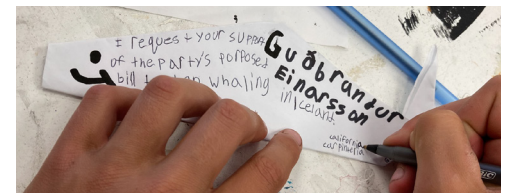 I request your suppr
of the party's porposed
bill to ban whaling
in Iceland.
Guðbrantur
Einarsson
california
carpinelia
BIC